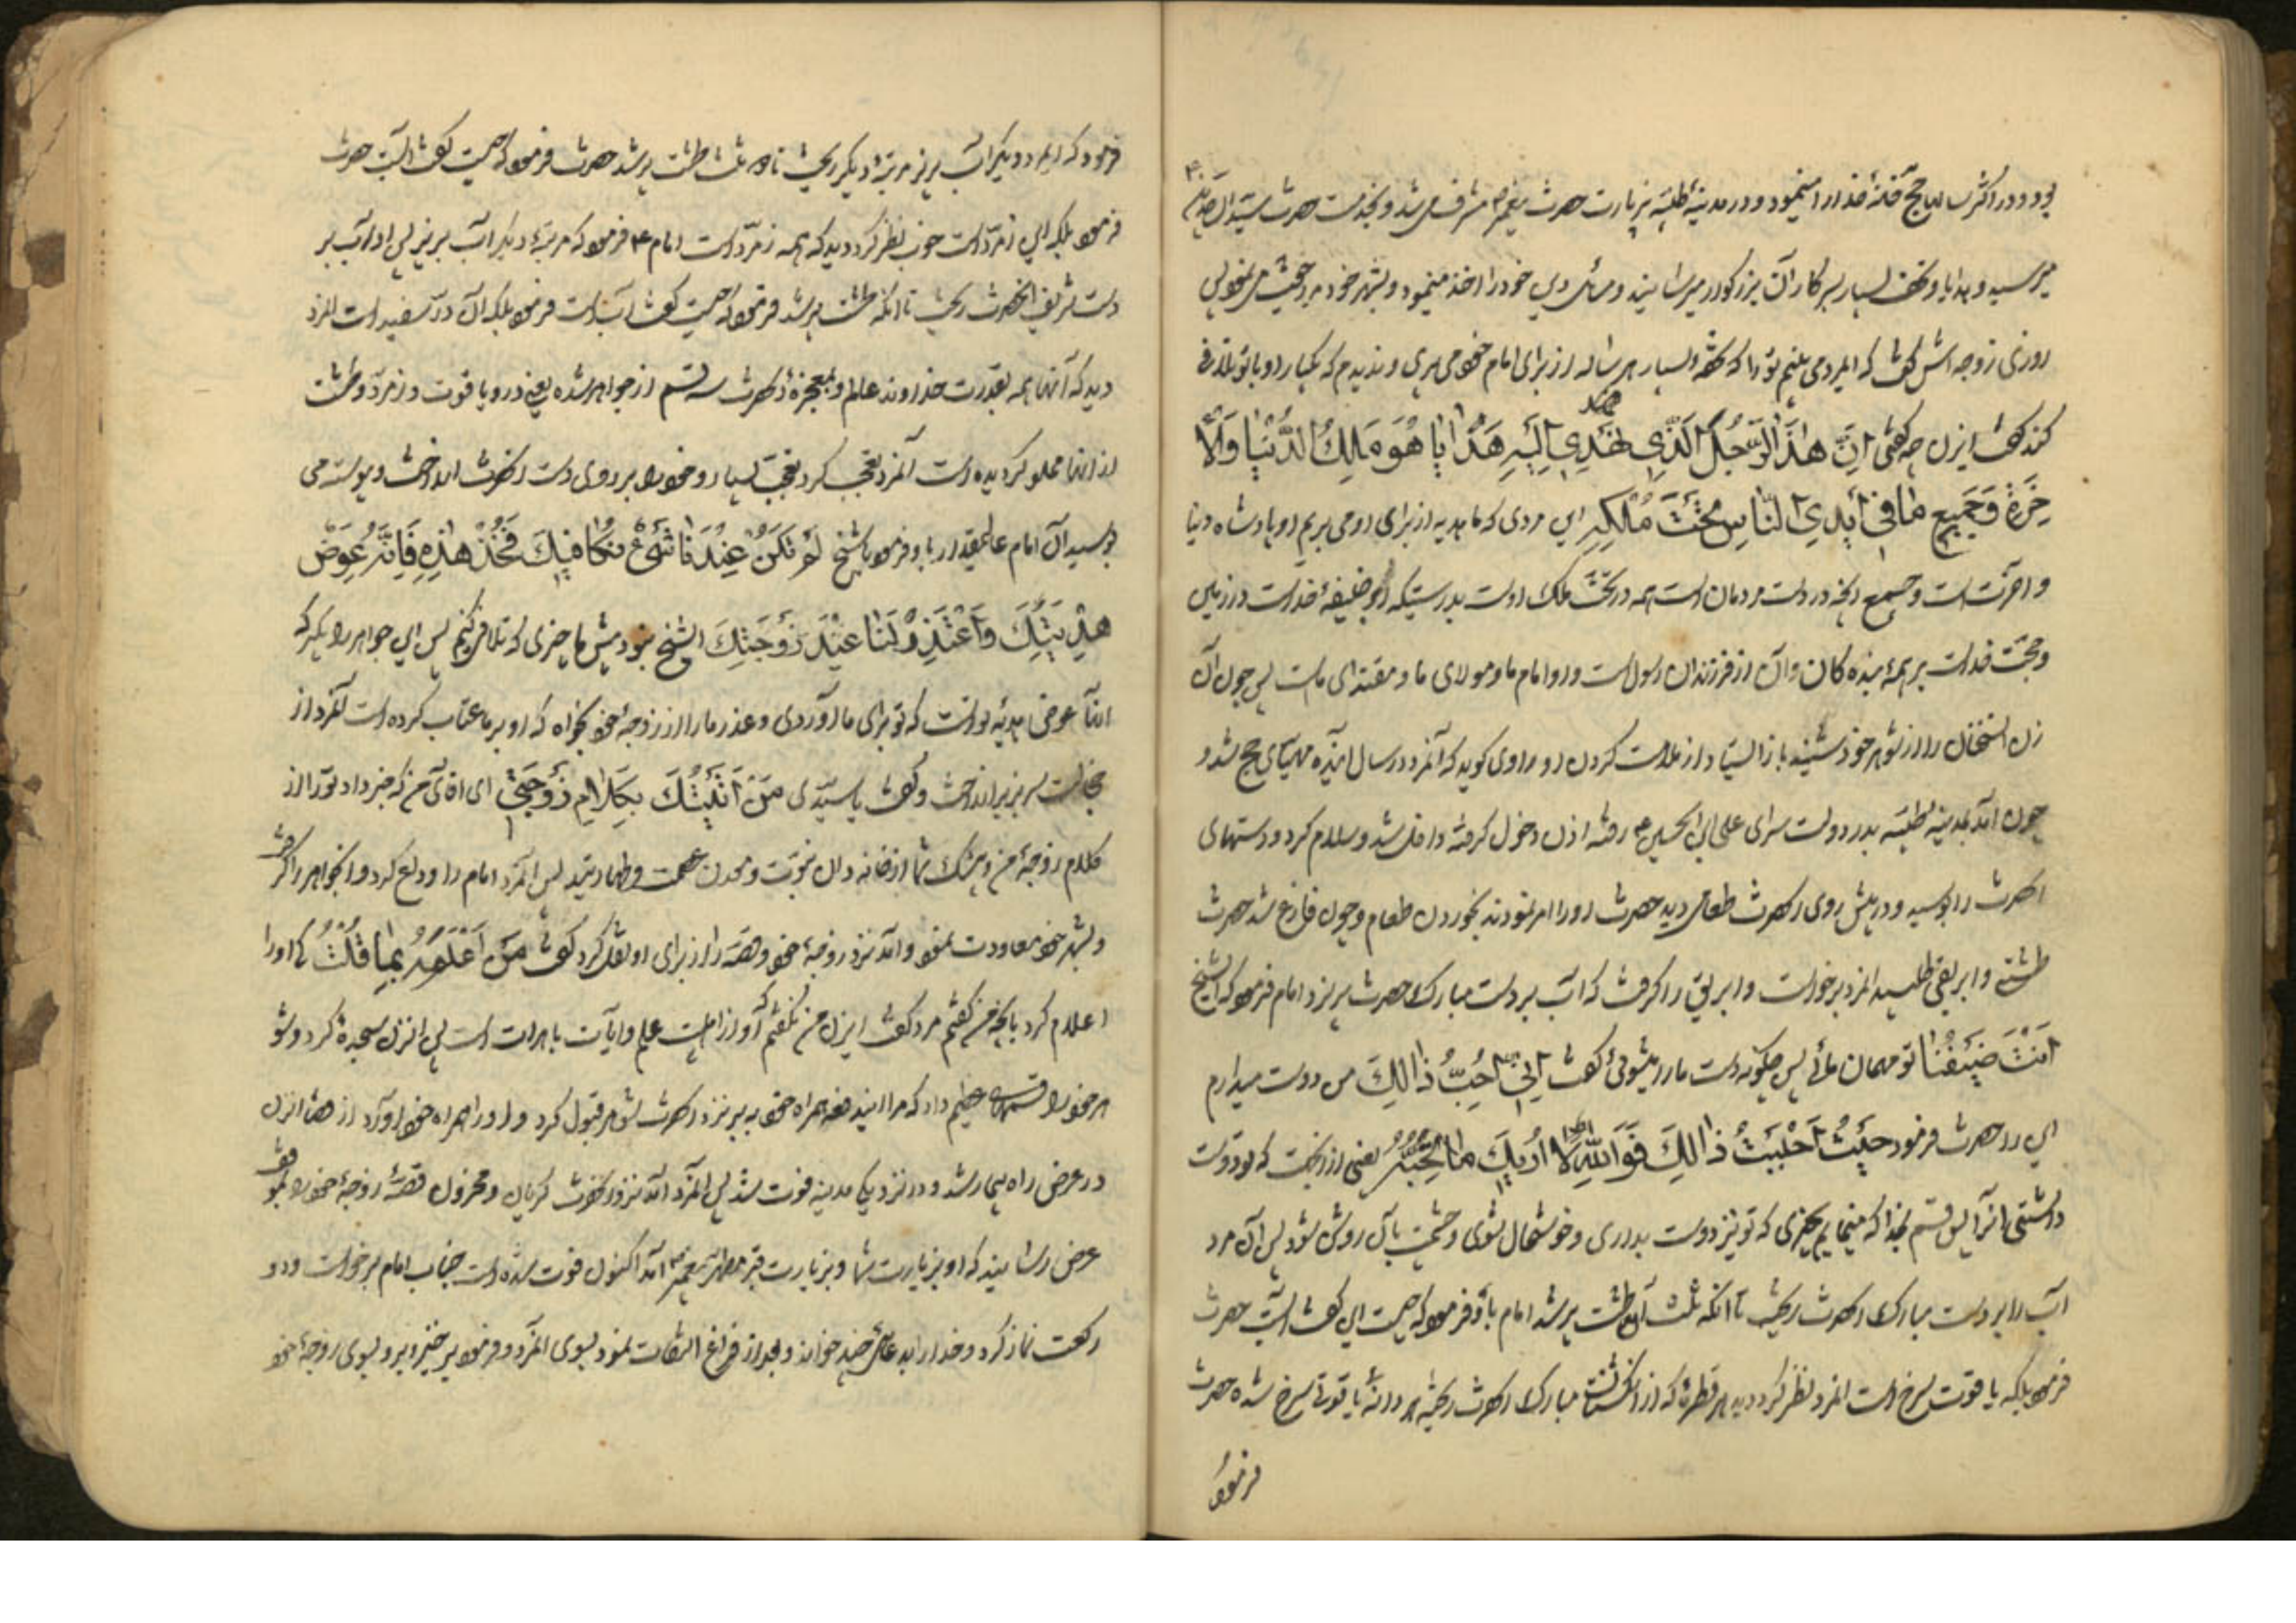 بود و در اکثر سالها حج خانهٔ خدا را مینمود و در مدینهٔ طیبه بزیارت حضرت پیغمبر ص مشرف میشد و بخدمت حضرت سید الساجدین ع
میرسید و هدایا و تحف بسیار بسرکار آن بزرگوار میرسانید و مسائل دین خود را اخذ مینمود و بشهر خود مراجعت می نمود پس
روزی زوجه اش گفت که ایمرد می بینم تو را که تحفه بسیار هر ساله از برای امام خود می بری و ندیدم که یکبار او با تو تلافی
کند گفت ایزن چه گفتی اِنَّ هٰذَا الرَّجُلَ الَّذِی نُهْدِی اِلَیْهِ هَدٰایٰا هُوَ مَلِكُ الدُّنْیٰا وَالْاٰ
خِرَةِ وَجَمِیعِ مٰا فِی أَیْدِی النّٰاسِ تَحْتَ مُلْکِهِ این مردی که ما هدیه از برای او می بریم او پادشاه دنیا
و آخرتست و جمیع آنچه در دست مردمان است همه در تحت ملک اوست بدرستیکه او خلیفهٔ خداست در زمین
و حجت خداست بر همهٔ بنده کان و آن از فرزندان رسولست و او امام ما و مولای ما و مقتدای ماست پس چون آن
زن این سخنان را از شوهر خود شنید باز ایستاد از ملامت کردن او راوی کوید که آنمرد در سال آینده مهیای حج شد و
چون آمد بمدینهٔ طیبه بدر دولت سرای علی ابن الحسین ع رفته اذن دخول کرفته داخل شد و سلام کرد و دستهای
آنحضرت را بوسید و در پیش روی آنحضرت طعامی دید حضرت او را امر نمودند بخوردن طعام و چون فارغ شد حضرت
طشتی و ابریقی طلبید آنمرد برخواست و ابریق را کرفت که آب بر دست مبارک حضرت بریزد امام فرمود که ایشیخ
اَنْتَ ضَیْفُنٰا تو مهمان مائی پس چکونه دست ما را میشوئی گفت اِنِّی اُحِبُّ ذٰالِكَ من دوست میدارم
این را حضرت فرمود حَیْثُ اَحْبَبْتَ ذٰالِكَ فَوَاللهِ لَا اُرِیَكَ مٰا تُحِبُّهُ یعنی از آنجهت که تو دوست
داشتی اینرا پس قسم بخدا که مینمایم بچیزی که تو نیز دوست بداری و خوشحال شوی و چشمت بآن روشن شود پس آن مرد
آب را بر دست مبارک آنحضرت ریخت تا آنکه ثلث آن طشت پر شد امام باو فرمود که چیست این گفت آبست حضرت
فرمود بلکه یاقوت سرخ است آنمرد نظر کرد دید هر قطرهٔ که از انکشتان مبارک آنحضرت ریخته هر دانهٔ یاقوتی سرخ شده حضرت
فرمود
فرمود که ایمرد دیکر آب بریز مرتبهٔ دیکر ریخت تا دو ثلث طشت پر شد حضرت فرمود که چیست گفت آبست حضرت
فرمود بلکه این زمرد است چون نظر کرد دید که همه زمرد است امام ع فرمود که مرتبهٔ دیکر آب بریز پس او آب بر
دست شریف آنحضرت ریخت تا آنکه طشت پر شد فرمود که چیست گفت آبست فرمود بلکه آن در سفید است آنمرد
دید که آنها همه بقدرت خداوند عالم و بمعجزهٔ آنحضرت سه قسم از جواهر شده یعنی در و یاقوت و زمرد و طشت
از آنها مملو کردیده است آنمرد تعجب کرد تعجب بسیار و خود را بر روی دست آنحضرت انداخت و پیوسته می
بوسید آن امام عالیمقدار باو فرمود یا شیخ لَمْ یَکُنْ عِنْدَنٰا شَیْءٌ نُکٰافِیكَ فَخُذْ هٰذِهِ فَاِنَّهُ عِوَضُ
هَدِیَّتِكَ وَاعْتَذِرْ لَنٰا عِنْدَ زَوْجَتِكَ ایشیخ نبود پیش ما چیزی که تلافی کنیم پس این جواهر را بکیر که
اینها عوض هدیهٔ توانست که تو برای ما آوردی و عذر ما را از زوجهٔ خود بخواه که او بر ما عتاب کرده است آنمرد از
خجالت سر بزیر انداخت و گفت یا سیدی مَنْ اَنْبَئَكَ بِکَلٰامِ زَوْجَتِی ای اقای من که خبر داد تو را از
کلام زوجهٔ من و بیشک شما از خانه دان نبوت و معدن عصمت و طهارتید پس آنمرد امام را وداع کرد و آنجواهر را کرفت
و بشهر خود معاودت نمود و آمد نزد زوجهٔ خود و قصه را از برای او نقل کرد گفت مَنْ اَعْلَمَهُ بِمٰا قُلْتُ که او را
اعلام کرد بآنچه من گفتم مرد گفت ایزن من نگفتم که او از اهلبیت علم و آیات باهرات است پس آنزن سجده کرد و شو
هر خود را قسمهای عظیم داد که مرا ایندفعه همراه خود ببر نزد آنحضرت شوهر قبول کرد و او را همراه خود آورد از قضا آنزن
در عرض راه بیمار شد و در نزدیکی مدینه فوت شد پس آنمرد آمد نزد آنحضرت کریان و محزون قصهٔ زوجهٔ خود را بموقف
عرض رسانید که او بزیارت شما و بزیارت قبر مطهر پیغمبر ص آمد اکنون فوت شده است جناب امام برخواست و دو
رکعت نماز کرد و خدا را بدعائی چند خواند و بعد از فراغ التفات نمود بسوی آنمرد و فرمود برخیز و برو بسوی زوجهٔ خود